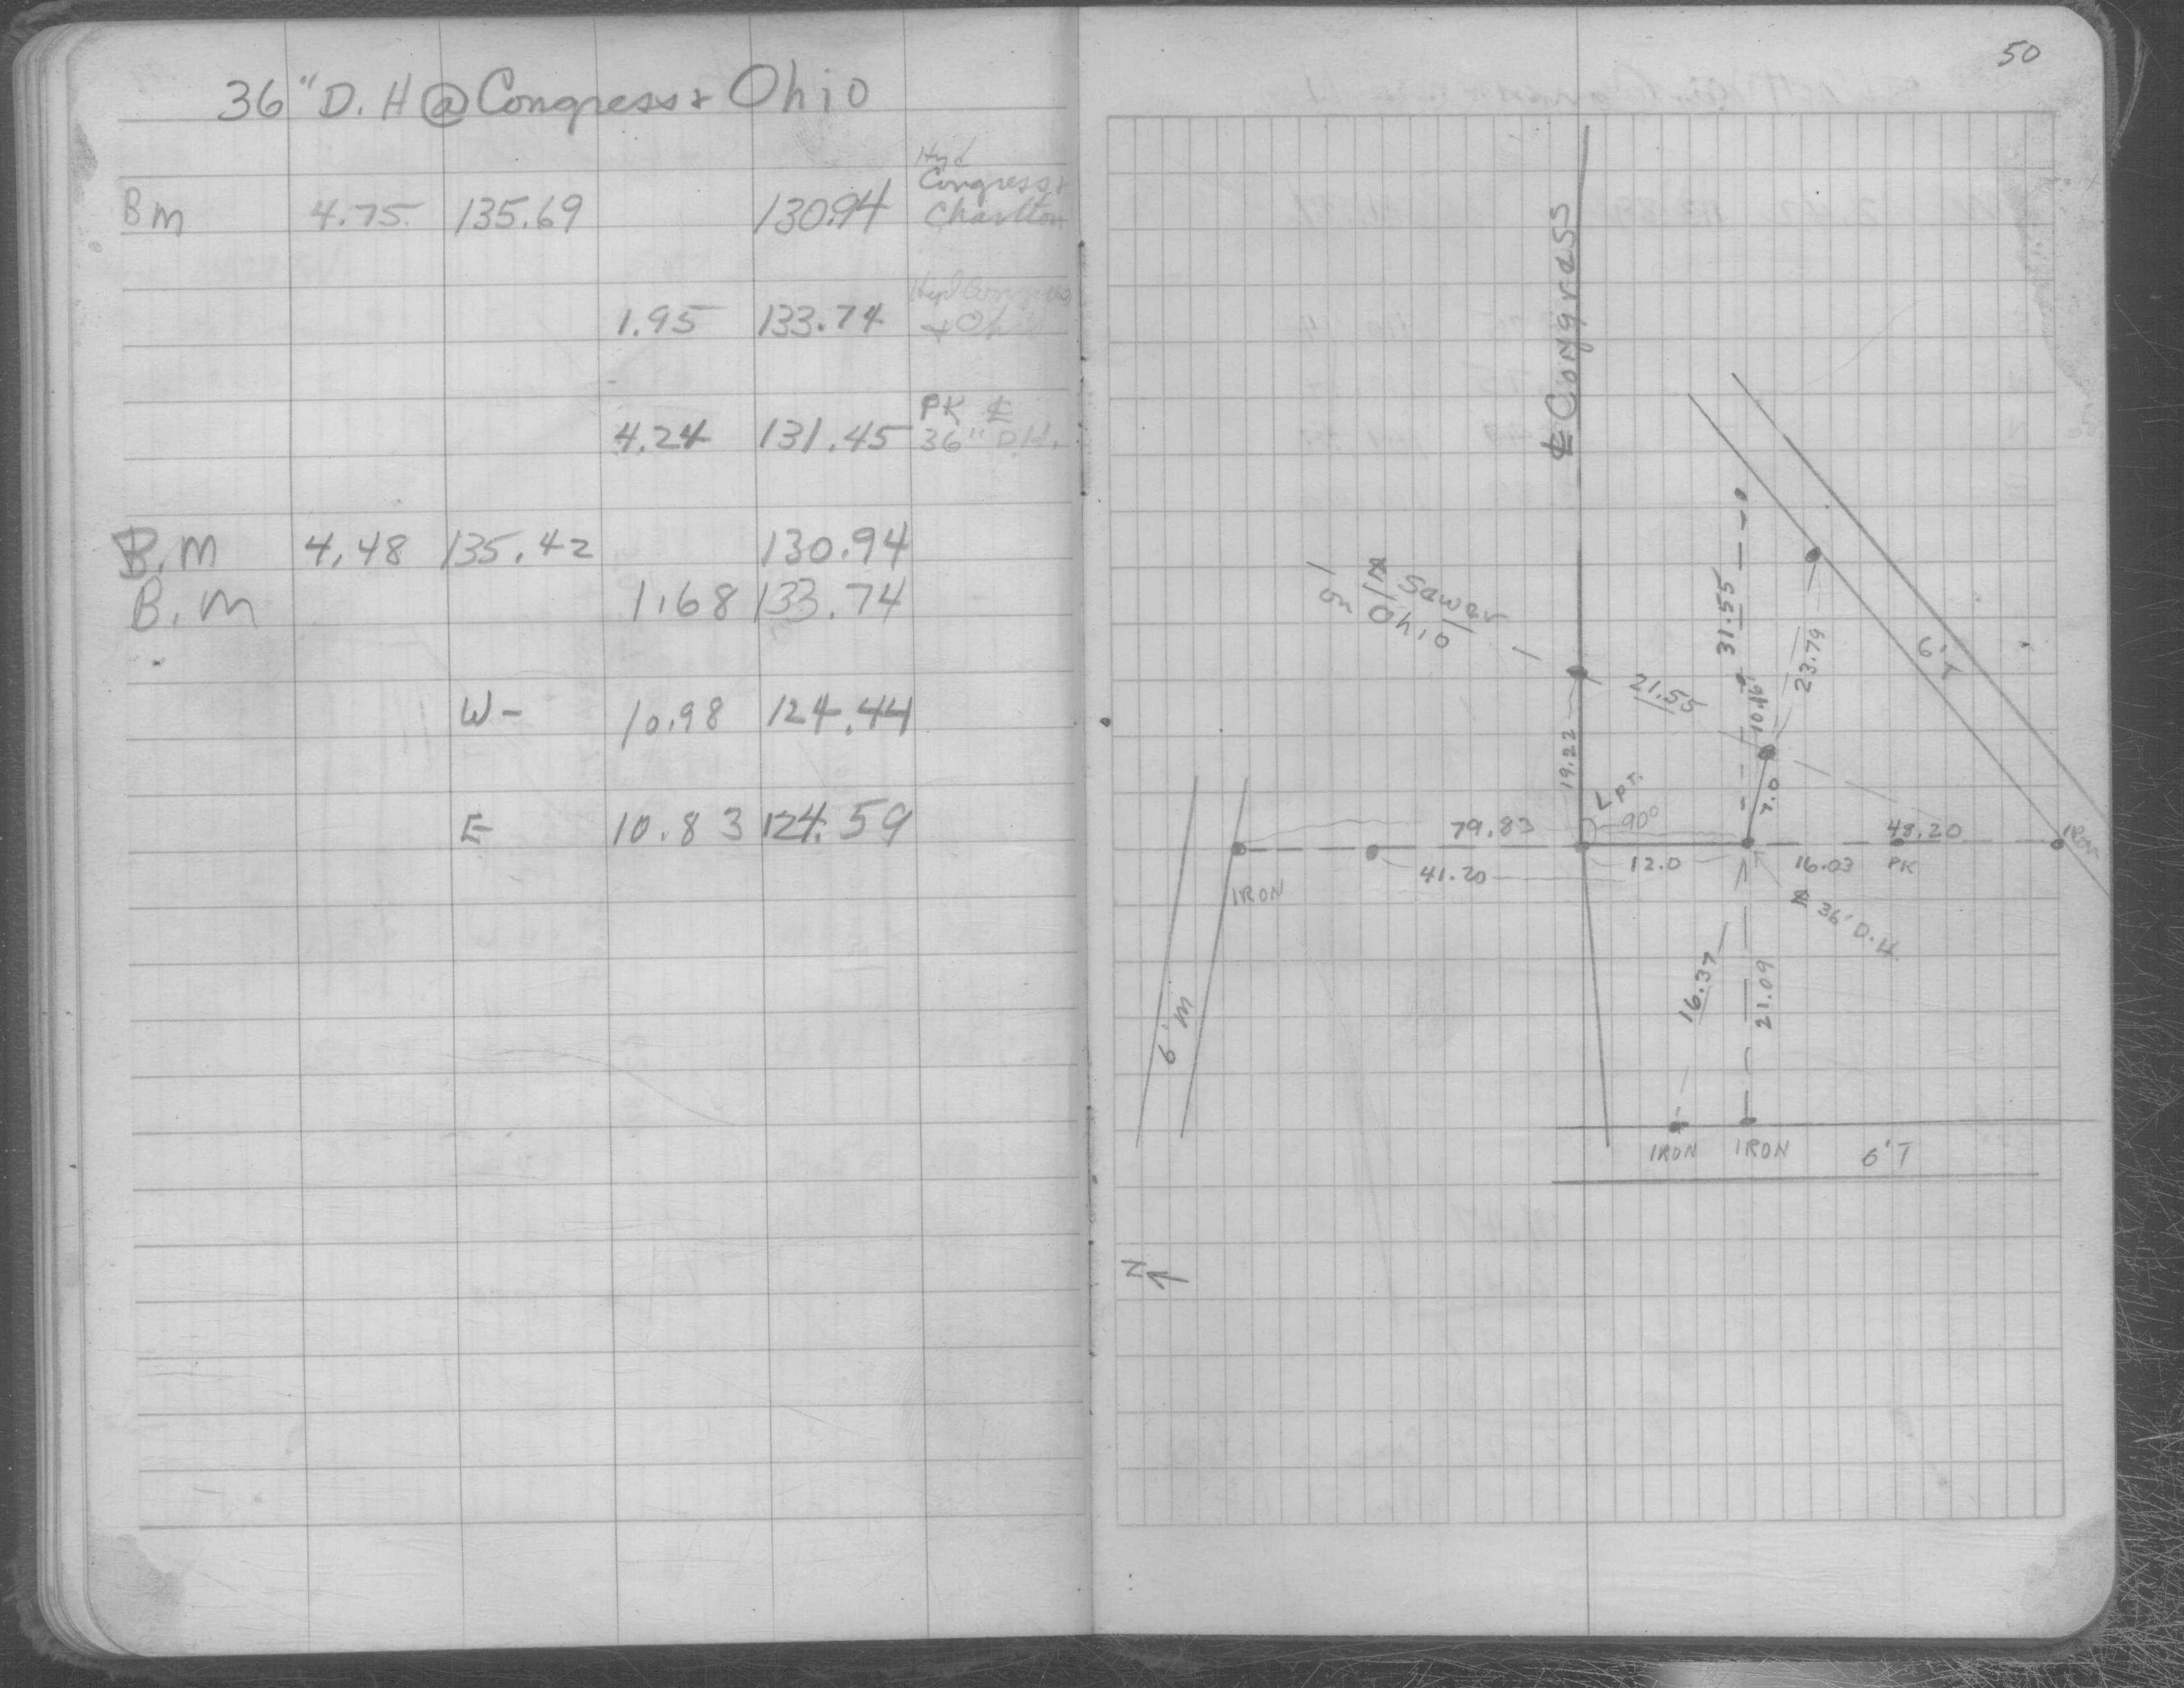 36" D. H @ Congress & Ohio
Hyd
Congress &
BM 4.75 135.69 130.94 Charlton
Hyd Congress
1.95 133.74 & Oh
PK ℄
4.24 131.45 36" D.H.
B.M 4.48 135.42 130.94
B.M 1.68 133.74
W- 10.98 124.44
E 10.83 124.59
50
℄ Congress
℄ Sewer
on Ohio
31.55
6' T
23.79
21.55
10.16
19.22
∠ PT.
7.0
90°
79.83
48.20
IRON
41.20
12.0
16.03
PK
IRON
℄ 36' D.H.
16.37
21.09
6' M
IRON
IRON
6' T
N